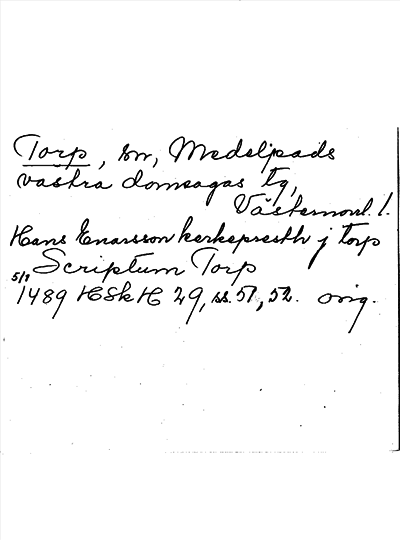 Torp, sn, Medelpads
västra domsagas tg,
Västernorrl. l.
Hans Enarsson kerkepresth j torp
Scriptum Torp
5/1 1489 HSkH 29, ss. 51, 52. orig.